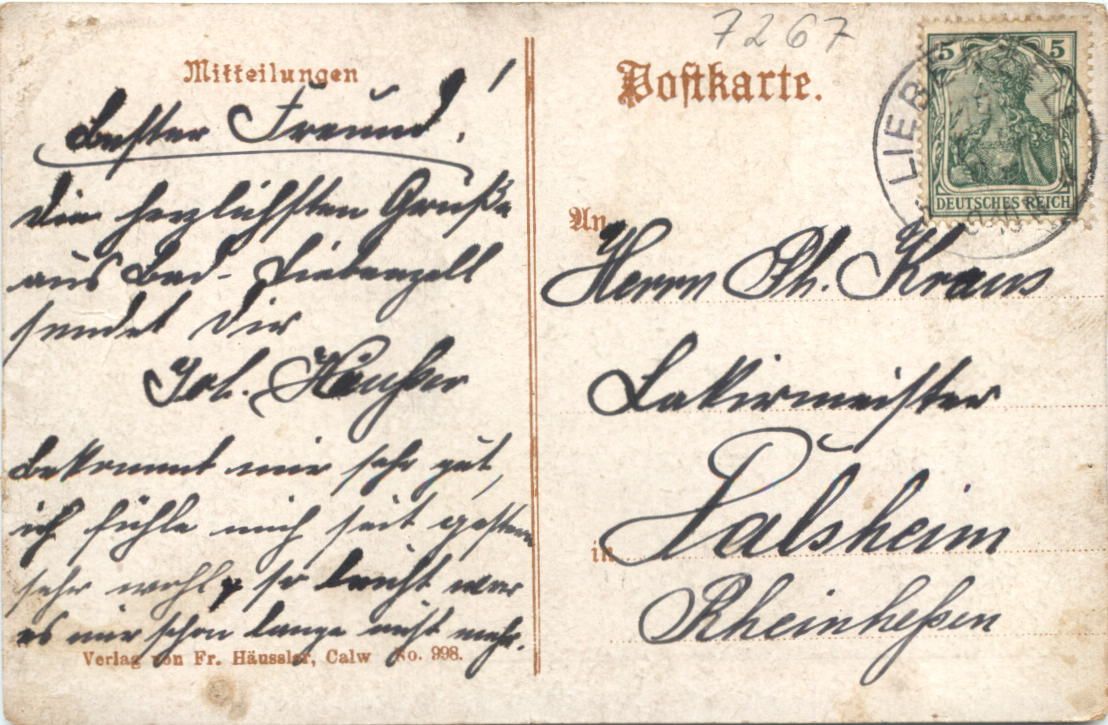 7267
Mitteilungen
Bester Freund!
Die herzlichsten Grüße
aus Bad-Liebenzell
sendet Dir
Joh.
Bekommt mir sehr gut,
ich fühle mich seit gestern
sehr wohl, so leicht war
es mir schon lange nicht mehr.
Verlag von Fr. Häussler, Calw No. 998.
Postkarte.
5 5
DEUTSCHES REICH
LIEB
An
Herrn Ph. Kraus
Lakirmeister
in Partenheim
Rheinhessen